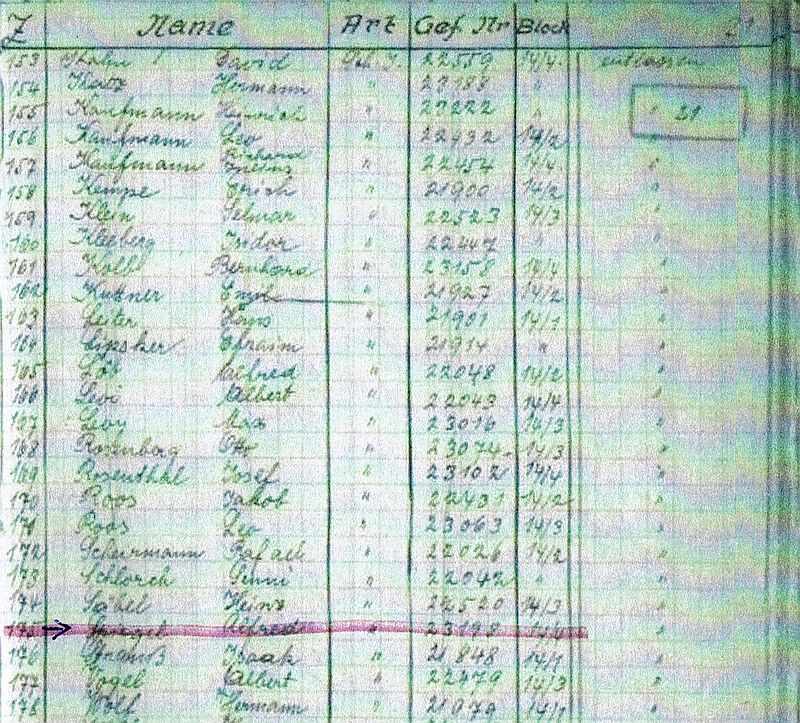 Z Name Art Gef Nr Block
153 David 22559 14/4 entlassen
154 Katz Hermann " "
155 Kaufmann Heinrich " 23222 " " 21
156 Kaufmann Leo " 22432 14/2 "
Richard
157 Kaufmann " 22454 14/4 "
158 Kempe Erich " 21900 14/2 "
159 Klein Selmar " 22523 14/3 "
160 Kleeberg Isidor " 22447 " "
161 Bernhard " 23158 14/4 "
162 Kuttner " 21927 14/2 "
163 Leiter Hans " 21901 14/1 "
164 Lipsker Efraim " 21914 " "
165 Alfred " 22048 14/2 "
166 Levi Albert " 22043 14/4 "
167 Levy Max " 23016 14/3 "
168 Rosenberg Otto " 23074 14/3 "
169 Rosenthal Josef " 23102 14/4 "
170 Roos Jakob " 22431 14/2 "
171 Roos Leo " 23063 14/3 "
172 Scheurmann Rafael " 22026 14/2 "
173 Schlorch " 22042 " "
174 Heinz " 22520 14/3 "
175 Alfred " "
176 Strauß Isaak " 21848 14/1 "
177 Vogel Albert " 22479 14/3 "
178 Wolf Hermann " 21979 14/1 "